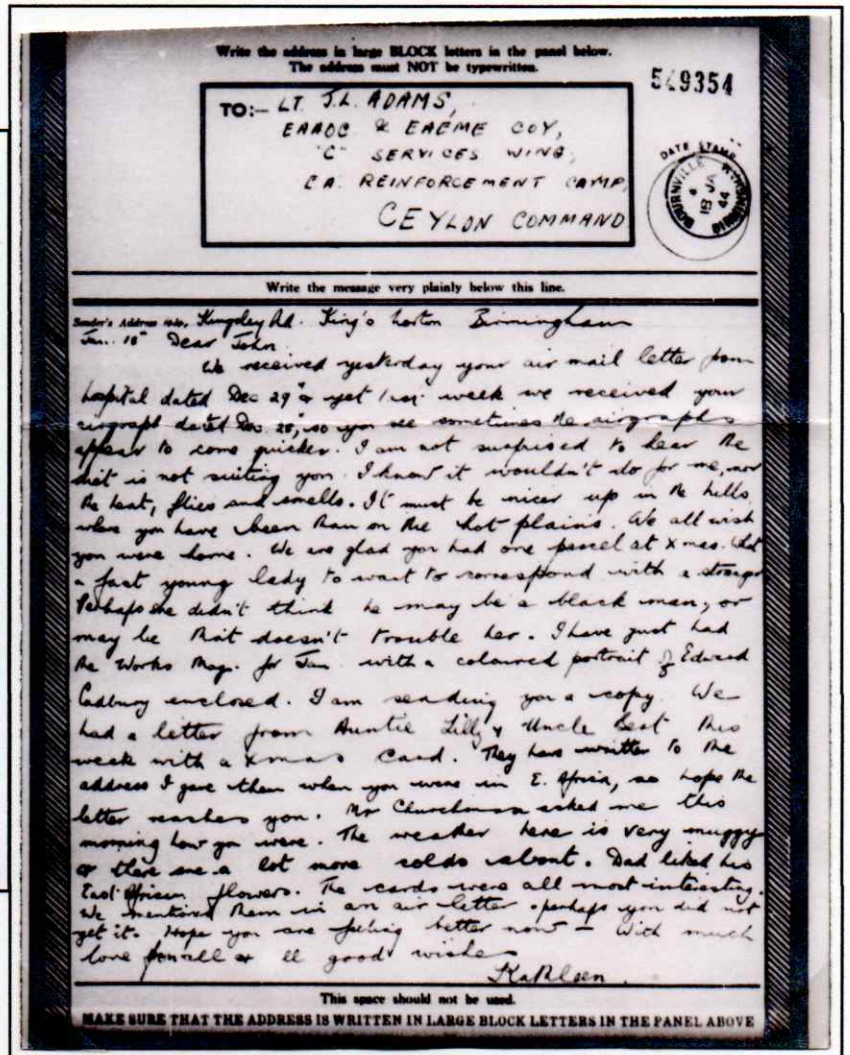 Write the address in large BLOCK letters in the panel below.
The address must NOT be typewritten.
549354
TO:— LT. J.L. ADAMS,
EAAOC & EAEME COY,
"C" SERVICES WING,
CA. REINFORCEMENT CAMP,
CEYLON COMMAND
DATE STAMP
BOURNVILLE BIRMINGHAM
18 JA 44
Write the message very plainly below this line.
Sender's Address Kingsley Rd. King's Norton Birmingham
Jan. 18th Dear John
We received yesterday your air mail letter from
hospital dated Dec 29th & yet last week we received your
airgraph dated Dec. 28th, so you see sometimes the airgraphs
appear to come quicker. I am not surprised to hear the
diet is not suiting you. I know it wouldn't do for me, nor
the heat, flies and smells. It must be nicer up in the hills
where you have been than on the hot plains. We all wish
you were home. We are glad you had one parcel at Xmas. What
a fast young lady to want to correspond with a stranger
Perhaps she didn't think he may be a black man, or
may be that doesn't trouble her. I have just had
the Works Mag. for Jan. with a coloured portrait of Edward
Cadbury enclosed. I am sending you a copy. We
had a letter from Auntie Lilly & Uncle Bert this
week with a Xmas card. They have written to the
address I gave them when you were in E. Africa, so hope the
letter reaches you. Mr Churchman asked me this
morning how you were. The weather here is very muggy
& there are a lot more colds about. Dad liked his
East African flowers. The cards were all most interesting.
We mentioned them in an air letter & perhaps you did not
get it. Hope you are feeling better now — With much
love from all & all good wishes
Kathleen.
This space should not be used.
MAKE SURE THAT THE ADDRESS IS WRITTEN IN LARGE BLOCK LETTERS IN THE PANEL ABOVE